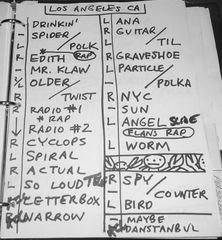 LOS ANGELES CA
L DRINKIN'
- SPIDER/
L POLK
R EDITH RAP
- MR. KLAW
½ OLDER/
R TWIST
R RADIO #1
* RAP
RADIO #2
R CYCLOPS
L SPIRAL
R ACTUAL
L SO LOUD
LETTERBOX
R NARROW
L ANA
R GUITAR/
L TIL
R GRAVESHOE
L PARTICLE/
POLKA
R NYC
- SUN
L ANGEL
FLANS RAP
L WORM
R SPY/
COUNTER
L BIRD
- MAYBE